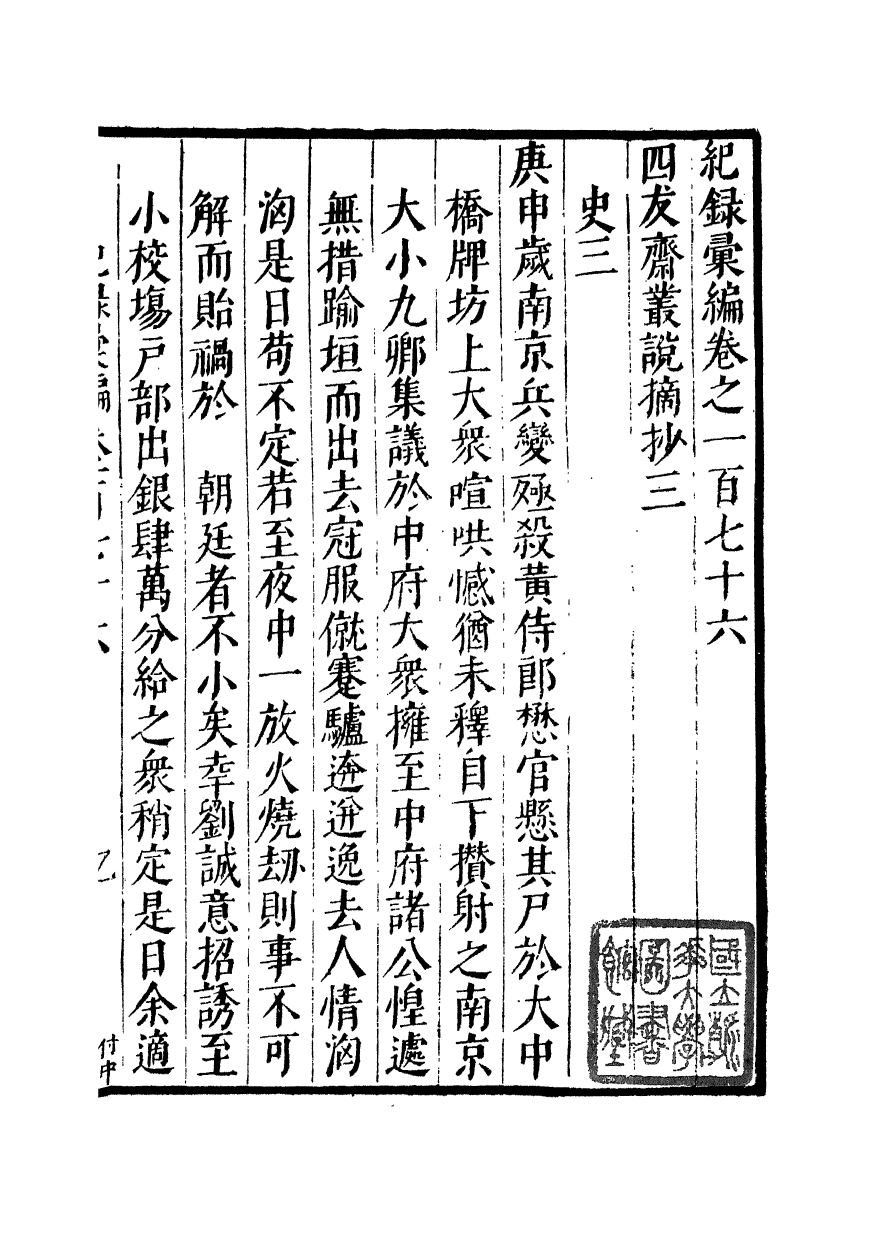 紀録彚編卷之一百七十六
四友齋叢説摘抄三
史三
庚申歲南京兵變殛殺黃侍郎懋官懸其尸於大中
橋牌坊上大衆喧哄憾猶未釋自下攢射之南京
大小九卿集議於中府大衆擁至中府諸公惶遽
無措踰垣而出去冠服僦蹇驢迸逸去人情洶
洶是日苟不定若至夜中一放火燒刼則事不可
解而貽禍於　朝廷者不小矣幸劉誠意招誘至
小校塲戸部出銀肆萬分給之衆稍定是日余適
付中